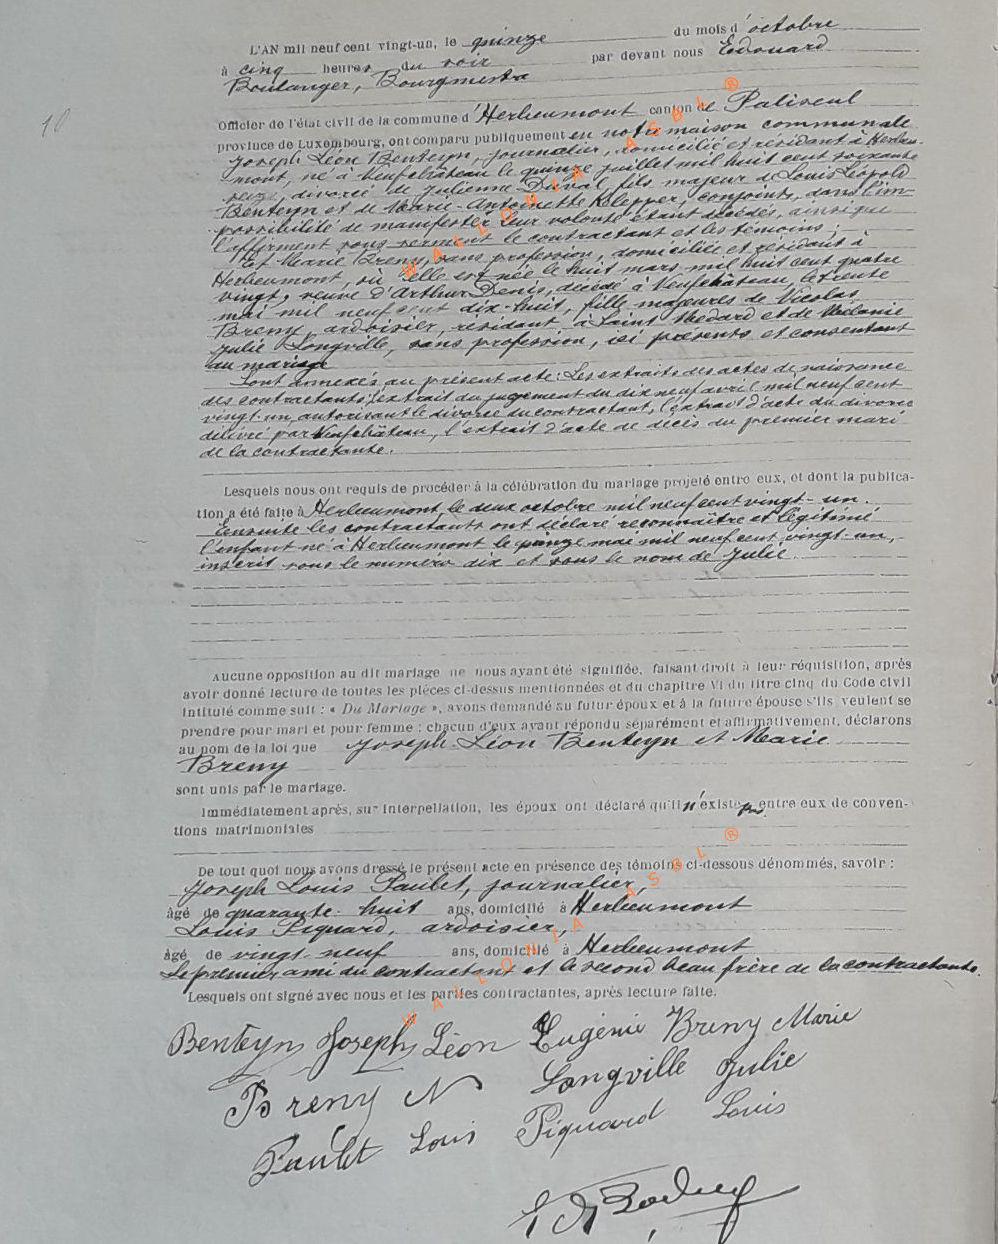 10
L'AN mil neuf cent vingt-un, le quinze du mois d'octobre
à cinq heures du soir par devant nous Edouard
Boulanger, Bourgmestre
Officier de l'état civil de la commune d'Herbeumont canton de Paliseul
province de Luxembourg, ont comparu publiquement en notre maison communale
Joseph Léon Benteyn, journalier, domicilié et résidant à Herbeu-
mont, né à Neufchâteau le quinze juillet mil huit cent soixante
seize, divorcé de Julienne Duval, fils majeur de Louis Léopold
Benteyn et de Marie-Antoinette Klepper, conjoints, dans l'im-
possibilité de manifester leur volonté étant décédés, ainsi que
l'afferment sous serment le contractant et les témoins;
Et Marie Breny, sans profession, domiciliée et résidant à
Herbeumont, où elle est née le huit mars mil huit cent quatre
vingt, veuve d'Arthur Denis, décédé à Neufchâteau, le trente
mai mil neuf cent dix-huit, fille majeure de Nicolas
Breny, ardoisier, résidant à Saint Médard et de Mélanie
Julie Longville, sans profession, ici présents et consentant
au mariage
Sont annexés au présent acte: Les extraits des actes de naissance
des contractants, l'extrait du jugement du dix neuf avril mil neuf cent
vingt-un, autorisant le divorce du contractant, l'extrait d'acte du divorce
délivré par Neufchâteau, l'extrait d'acte de décès du premier mari
de la contractante.
Lesquels nous ont requis de procéder à la célébration du mariage projeté entre eux, et dont la publica-
tion a été faite à Herbeumont, le deux octobre mil neuf cent vingt-un.
Ensuite les contractants ont déclaré reconnaître et légitimé
l'enfant né à Herbeumont le quinze mai mil neuf cent vingt-un,
inscrit sous le numéro dix et sous le nom de Julie.
Aucune opposition au dit mariage ne nous ayant été signifiée, faisant droit à leur réquisition, après
avoir donné lecture de toutes les pièces ci-dessus mentionnées et du chapitre VI du titre cinq du Code civil
intitulé comme suit : « Du Mariage », avons demandé au futur époux et à la future épouse s'ils veulent se
prendre pour mari et pour femme : chacun d'eux ayant répondu séparément et affirmativement, déclarons
au nom de la loi que Joseph-Léon Benteyn et Marie
Breny
sont unis par le mariage.
Immédiatement après, sur interpellation, les époux ont déclaré qu'il n'existe pas entre eux de conven-
tions matrimoniales
De tout quoi nous avons dressé le présent acte en présence des témoins ci-dessous dénommés, savoir :
Joseph Louis Paulet, journalier,
âgé de quarante-huit ans, domicilié à Herbeumont
Louis Piquard, ardoisier,
âgé de vingt-neuf ans, domicilié à Herbeumont
Le premier ami du contractant et le second beau frère de la contractante.
Lesquels ont signé avec nous et les parties contractantes, après lecture faite.
Benteyn Joseph Léon Eugénie Breny Marie
Breny N Longville Julie
Paulet Louis Piquard Louis
WALLONIA ASBL ®
WALLONIA ASBL ®